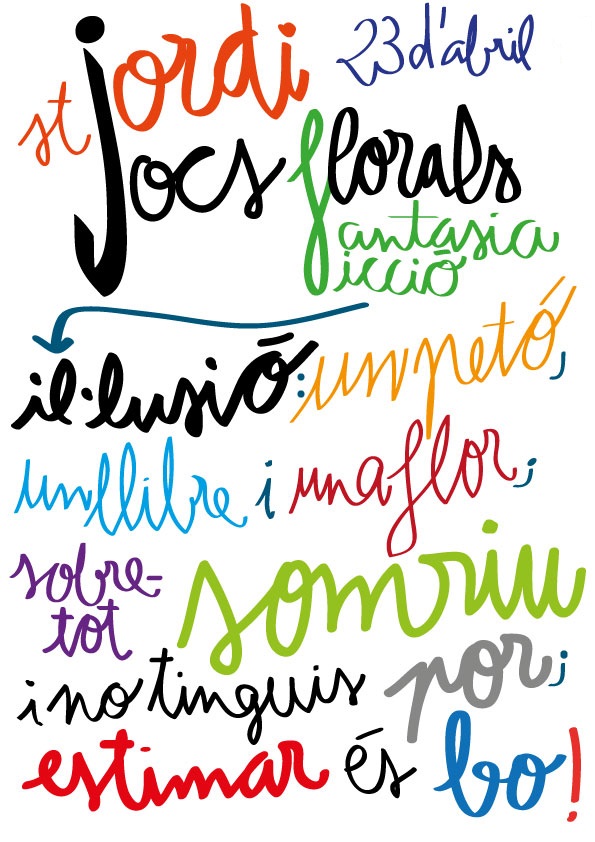 st jordi 23 d'abril
jocs florals
fantàsia
ficció
il·lusió: un petó,
un llibre i una flor;
sobre-
tot somriu
i no tinguis por;
estimar és bo!